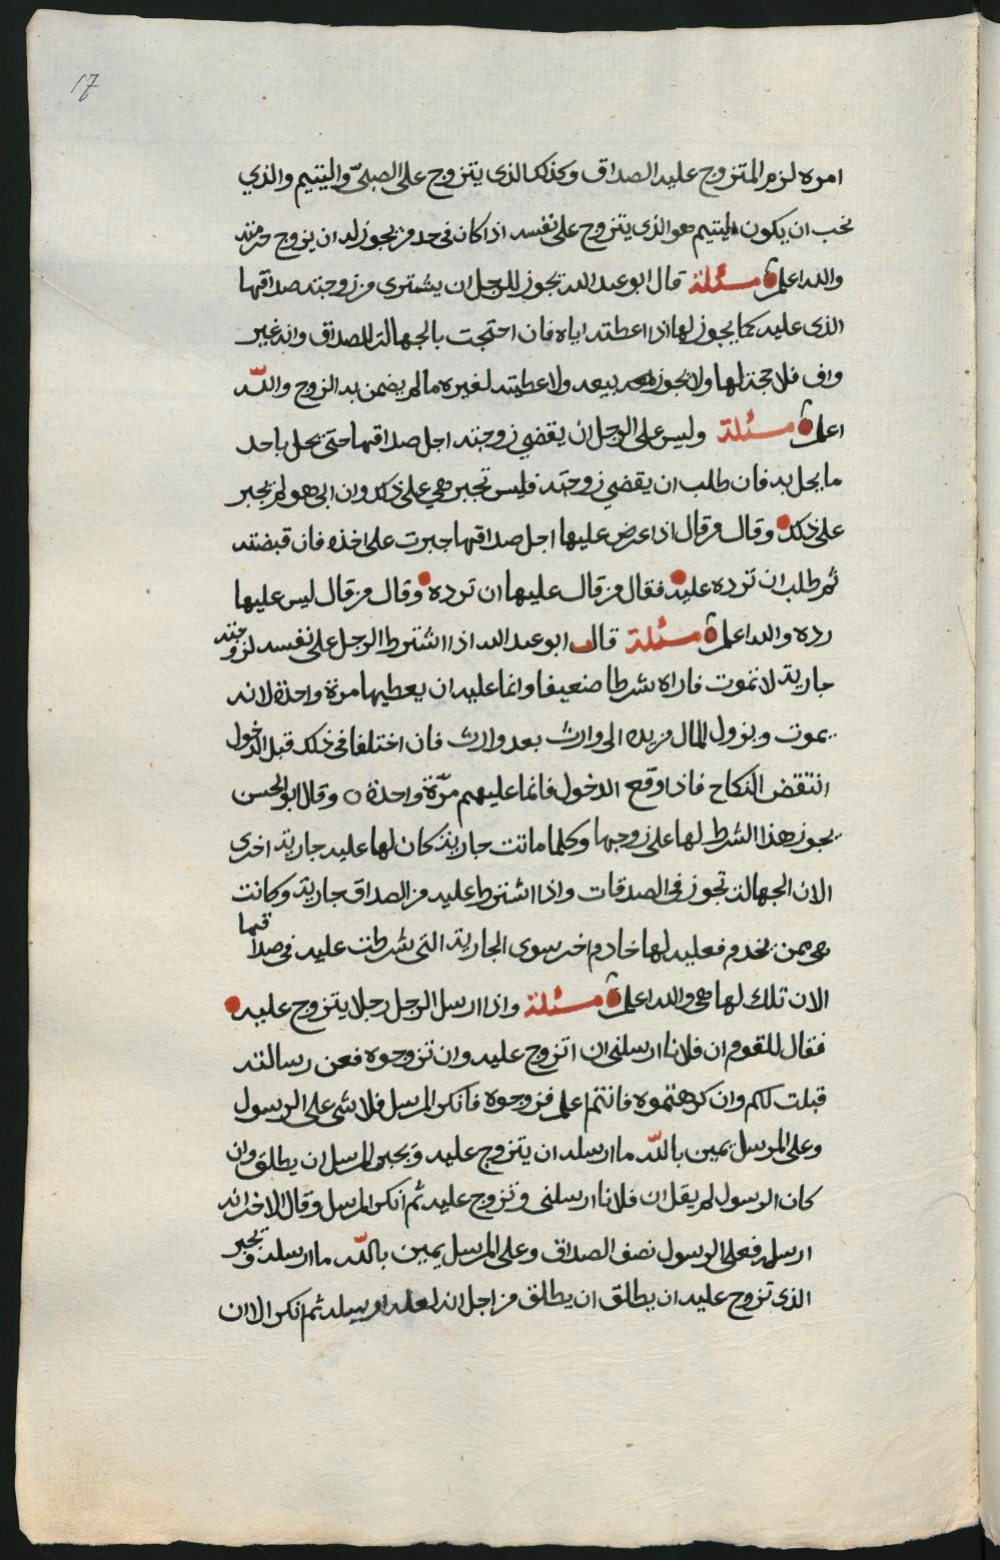 17
امره لزم المتزوج عليه الصداق وكذلك الذى يتزوج على الصبىّ واليتيم والذي
نحب ان يكون اليتيم هو الذى يتزوج على نفسه اذا كان فى حد من يجوز له ان يزوج حرمته
والله اعلم مسئلة قال ابو عبد الله تجوز للرجل ان يشترى من زوجته صداقها
الذى عليه كما يجوز لها اذا اعطته اياه فان احتجت بالجهالة للصداق وانه غير
واف فلا حجة لها ولا تجوز بيعه ولا عطيته لغيره ما لم يضمن به الزوج والله
اعلم مسئلة وليس على الرجل ان يقضي زوجته اجل صداقها حتى يحل باحد
ما يحل به فان طلب ان يقضي زوجته فليس تجبر هي على ذلك وان ابى هو لم يجبر
على ذلك وقال من قال اذا عرض عليها اجل صداقها جبرت على اخذه فان قبضته
ثم طلب ان ترده عليه فقال من قال عليها ان ترده وقال من قال ليس عليها
رده والله اعلم مسئلة قال ابو عبد الله اذا اشترط الرجل على نفسه لزوجته
جارية لا تموت فاراه شرطا ضعيفا وانما عليه ان يعطيها مرة واحدة لانه
يموت ويزول المال من يده الى وارث بعد وارث فان اختلفا فى ذلك قبل الدخول
انتقض النكاح فاذا وقع الدخول فانما عليهم مرّة واحدة ○ وقال ابو الحسن
يجوز هذا الشرط لها على زوجها وكلما ماتت جارية كان لها عليه جارية اخرى
الان الجهالة تجوز فى الصدقات واذا اشترط عليه من الصداق جارية وكانت
هى ممن يخدم فعليه لها خادم اخر سوى الجارية التى شرطت عليه فى صداقها
الان تلك لها هى والله اعلم مسئلة واذا ارسل الرجل رجلا يتزوج عليه
فقال للقوم ان فلانا ارسلنى ان اتزوج عليه وان تزوجوه فعن رسالته
قبلت لكم وان كرهتموه فانتم اعلم فزوجوه فانكر المرسل فلا شى على الرسول
وعلى المرسل يمين بالله ما ارسله ان يتزوج عليه ويجبر المرسل ان يطلق وان
كان الرسول لم يقل ان فلانا ارسلنى وتزوج عليه ثم انكر المرسل وقال الاخر انه
ارسله فعلى الرسول نصف الصداق وعلى المرسل يمين بالله ما ارسله ويجبر
الذى تزوج عليه ان يطلق ان يطلق من اجل انه لعله ارسله ثم انكر الا ان